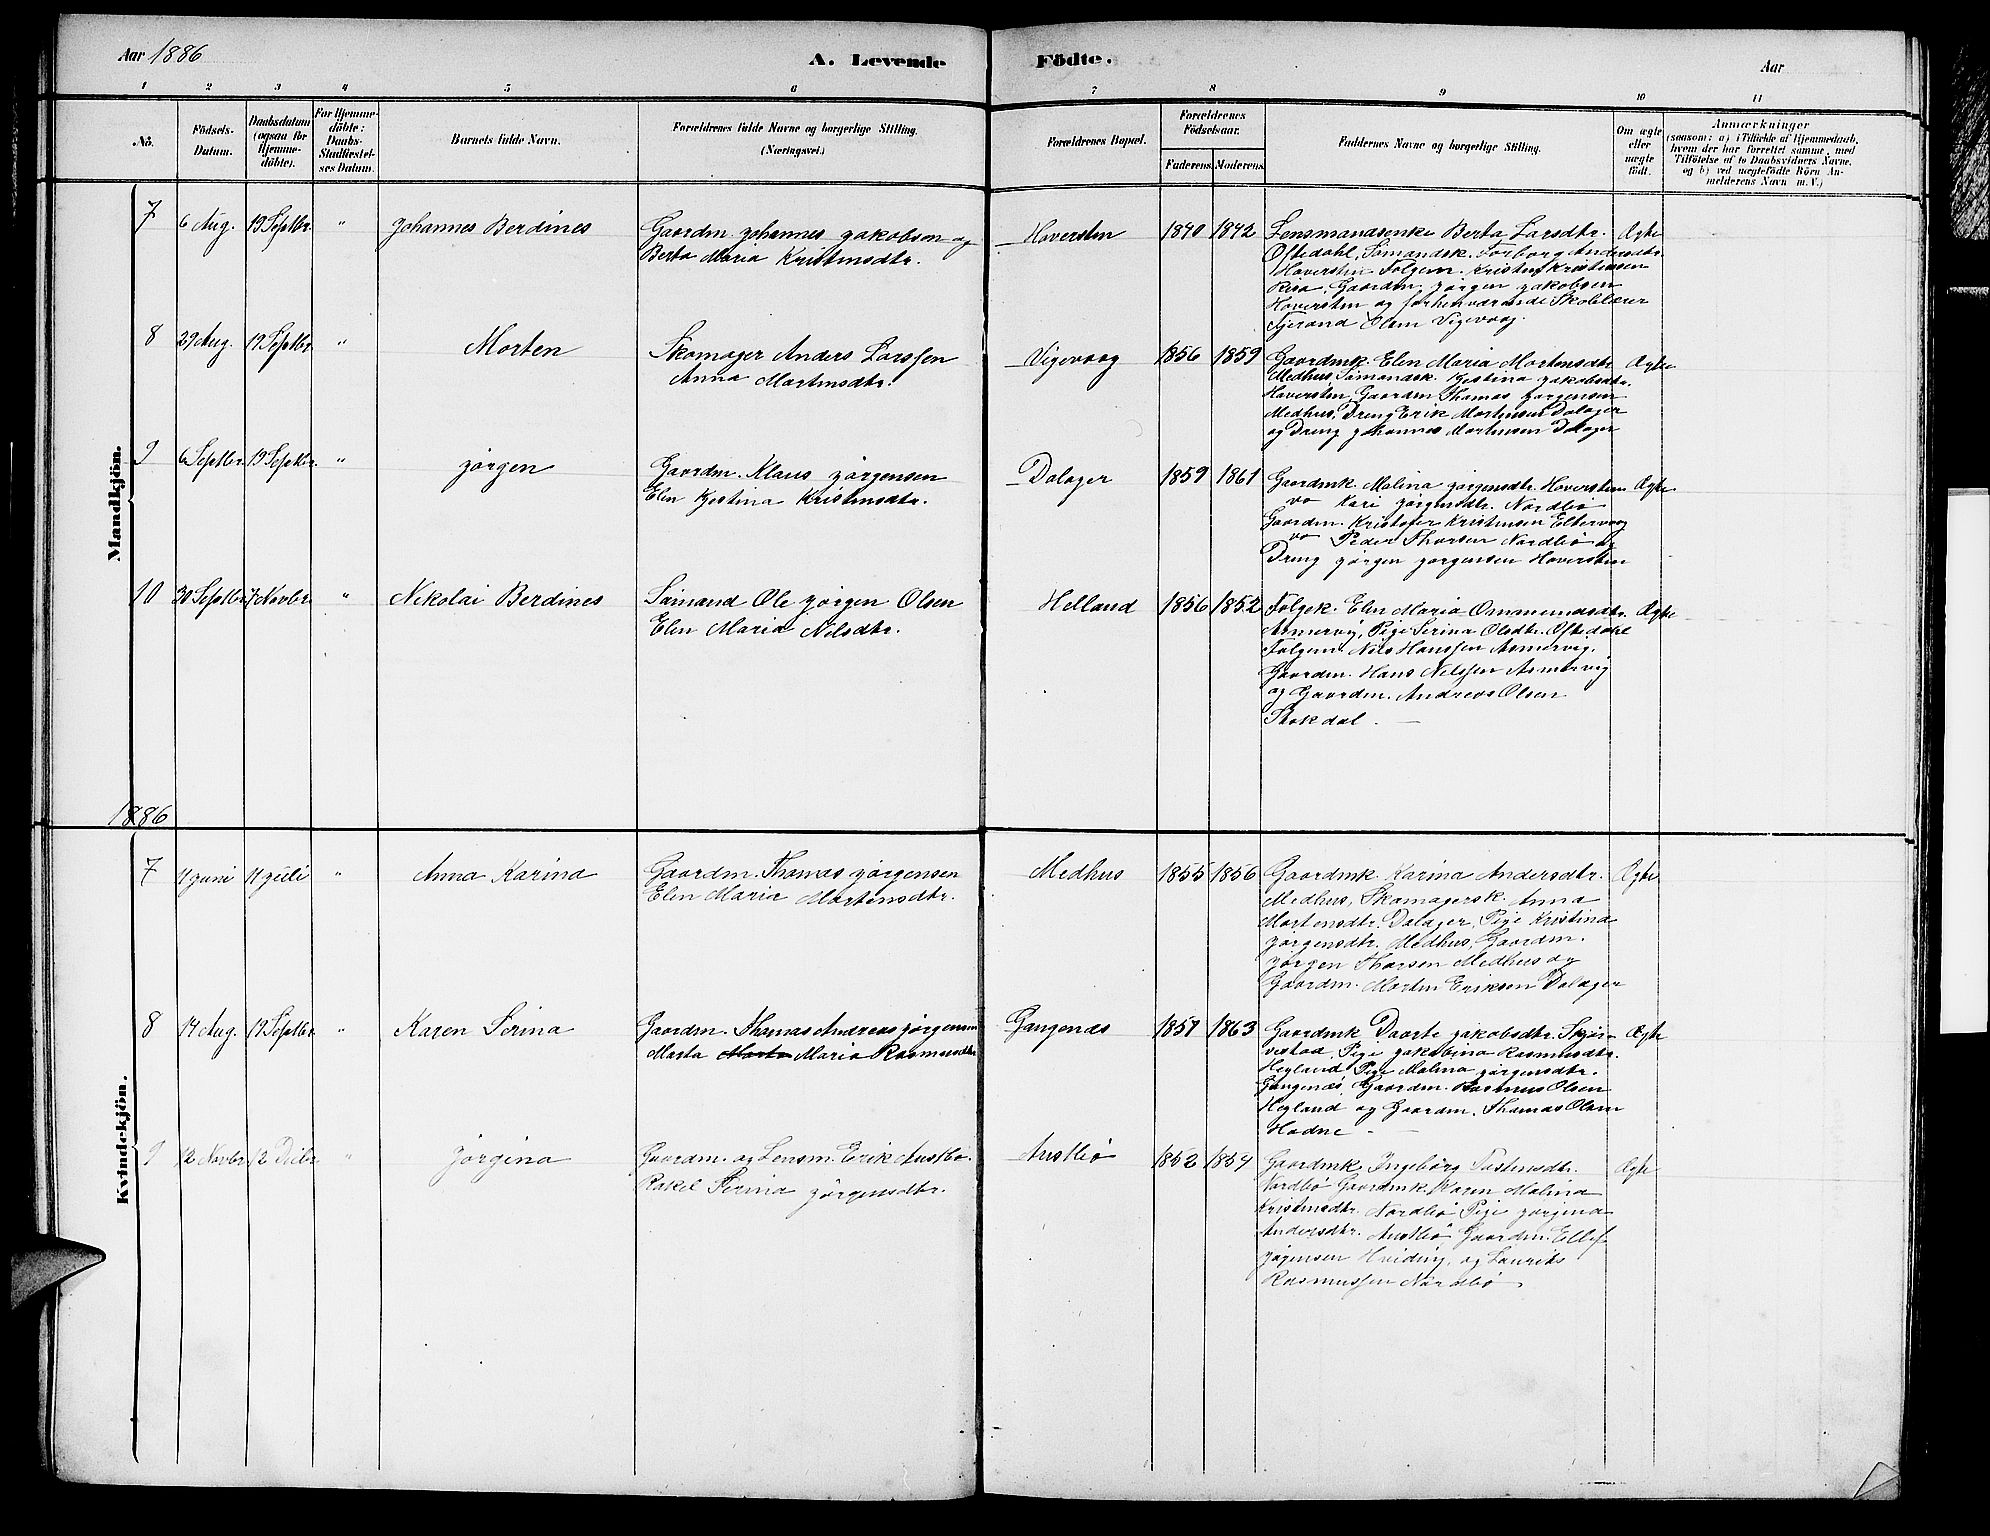 Aar 1886
A. Levende Födte.
Aar
1 2 3 4 5 6 7 8 9 10 11
No.
Födsels-Datum.
Daabsdatum (ogsaa for Hjemme-döbte).
For Hjemme-döbte: Daabs-Stadfæstel-ses Datum.
Barnets fulde Navn.
Forældrenes fulde Navne og borgerlige Stilling. (Næringsvei.)
Forældrenes Bopæl.
Forældrenes Födselsaar.
Faderens. Moderens.
Faddernes Navne og borgerlige Stilling.
Om ægte eller uægte födt.
Anmærkninger
(saasom: a) i Tilfælde af Hjemmedaab,
hvem der har forrettet samme, med
Tilföielse af to Daabsvidners Navne,
og b) ved uægtefödte Börn An-
melderens Navn m. V.)
Mandkjön.
7 6 Aug. 19 Septbr. " Johannes Berdines
Gaardm. Johannes Jakobsen og
Berta Maria Kristensdtr.
Haversten 1840 1842
Lensmandsenke Berta Larsdtr.
Oftedahl, Sömandsk. Torborg Andersdtr.
Haversten Folgem. Kristen Kristensen
Risa, Gaardm. Jörgen Jakobsen
Haversten og forhenværende Skolelærer
Tjerand Olsen Vigevaag.
Ægte
8 29 Aug. 19 Septbr. " Morten
Skomager Anders Larssen
Anna Martensdtr.
Vigevaag 1856 1859
Gaardmk. Elen Maria Mortensdtr.
Medhus, Sömandsk. Kjestina Jakobsdtr.
Haversten, Gaardm. Thomas Jörgensen
Medhus, Dreng Erik Mortensen Dalager
og Dreng Johannes Mortensen Dalager
Ægte
9 6 Septbr. 19 Septbr. " Jörgen
Gaardm. Klaus Jörgensen
Elen Kjestina Kristensdtr.
Dalager 1859 1861
Gaardmk. Malina Jörgensdtr. Haversten
do Kari Jörgensdtr. Nordbö
Gaardm. Kristofer Kristensen Eltervaag
do Peder Thorsen Nordbö og
Dreng Jörgen Jörgensen Haversten
Ægte
10 30 Septbr. 7 Novbr. " Nikolai Berdines
Sömand Ole Jörgen Olsen
Elen Maria Nilsdtr.
Helland 1856 1852
Folgek. Elen Maria Ommundsdtr.
Asmervig, Pige Serina Olsdtr. Oftedahl
Folgem. Nils Hanssen Asmervig.
Gaardm. Hans Nilssen Asmervig
og Gaardm. Andreas Olsen
Stokdal. —
Ægte
1886
Kvindekjön.
7 4 Juni 4 Juli " Anna Karina
Gaardm. Thomas Jörgensen
Elen Maria Mortensdtr.
Medhus 1855 1856
Gaardmk Karina Andersdtr.
Medhus, Skomagersk. Anna
Mortensdtr. Dalager, Pige Kristina
Jörgensdtr. Medhus, Gaardm.
Jörgen Thorsen Medhus og
Gaardm. Morten Eriksen Dalager
Ægte
8 14 Aug. 19 Septbr. " Karen Serina
Gaardm. Thomas Andreas Jörgensen
Marta Marta Maria Rasmusdtr.
Gangenæs 1857 1863
Gaardmk Daarte Jakobsdtr. Skjör-
vestad, Pige Jakobina Rasmusdtr.
Hegland, Pige Malina Jörgensdtr.
Gangenæs, Gaardm. Rasmus Olsen
Hegland og Gaardm. Thomas Olsen
Hodne —
Ægte
9 12 Novbr. 12 Decbr. " Jörgina
Gaardm. og Lensm. Erik Austbö.
Rakel Serina Jörgensdtr.
Austbö 1852 1854
Gaardmk. Ingeborg Tostensdtr.
Nordbö Gaardmk. Karen Malina
Kristensdtr. Nordbö Pige Jörgina
Andersdtr. Austbö, Gaardm. Ellef
Jögensen Hviding, og Laurits
Rasmussen Nordbö
Ægte